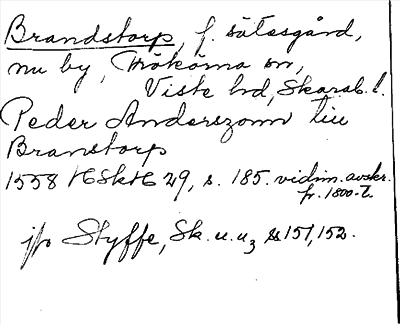 Brandstorp, f. sätesgård,
nu by, Trökörna sn,
Viste hd, Skarab. l.
Peder Anderszonn till
Branstorp
1558 HSkH 29, s. 185. vidim. avskr.
fr. 1800-t.
jfr Styffe, Sk. u. u3 ss 151, 152.